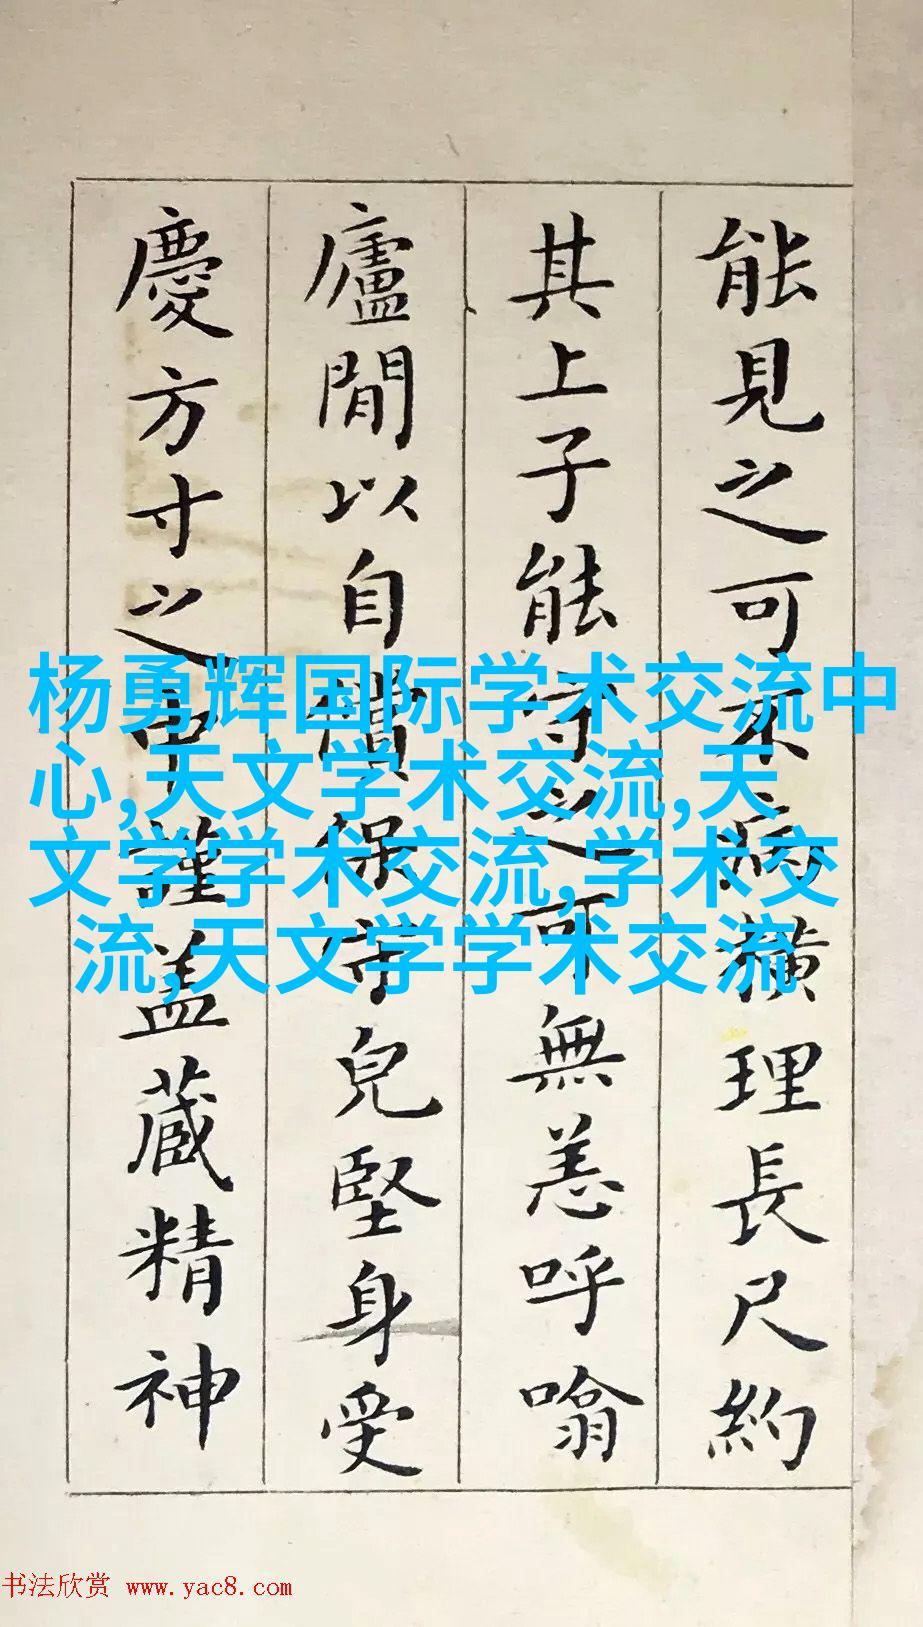 能見之可不病横理長尺約
其上子能守之可無恙呼噏
廬閒以自償保守兒堅身受
慶方寸之中謹盖藏精神
杨勇辉国际学术交流中
心,天文学术交流,天
文学学术交流,学术交
流,天文学学术交流
书法欣赏 www.yac8.com